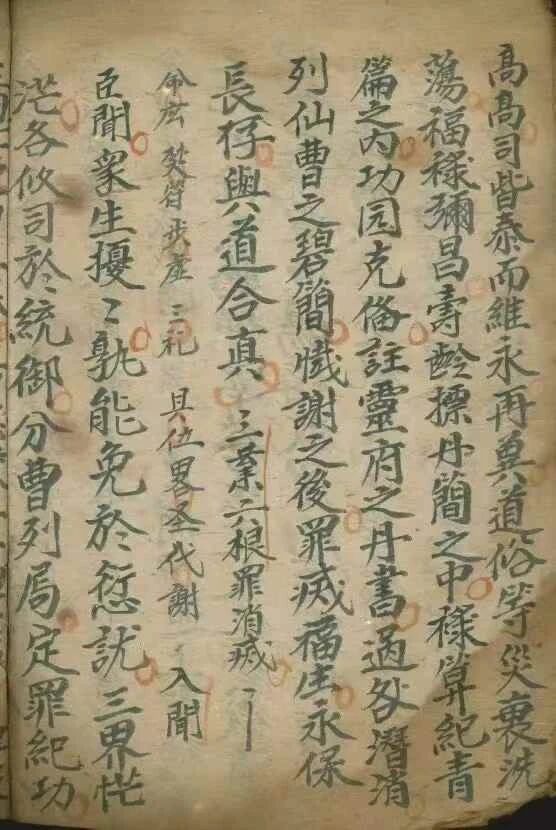 高高司皆泰而維永再兾道俗等災衷洗
蕩福祿彌昌壽龄摽丹簡之中祿算紀青
篇之内功园克俻註靈府之丹書過咎潛消
列仙曹之碧簡懴謝之後罪滅福生永保
長存與道合真 三業六根罪消滅
命庅 步虗 三礼 具位畧圣代謝 入聞
臣聞衆生擾〻孰能免於愆訧三界茫
茫各攸司於統御分曹列局定罪紀功